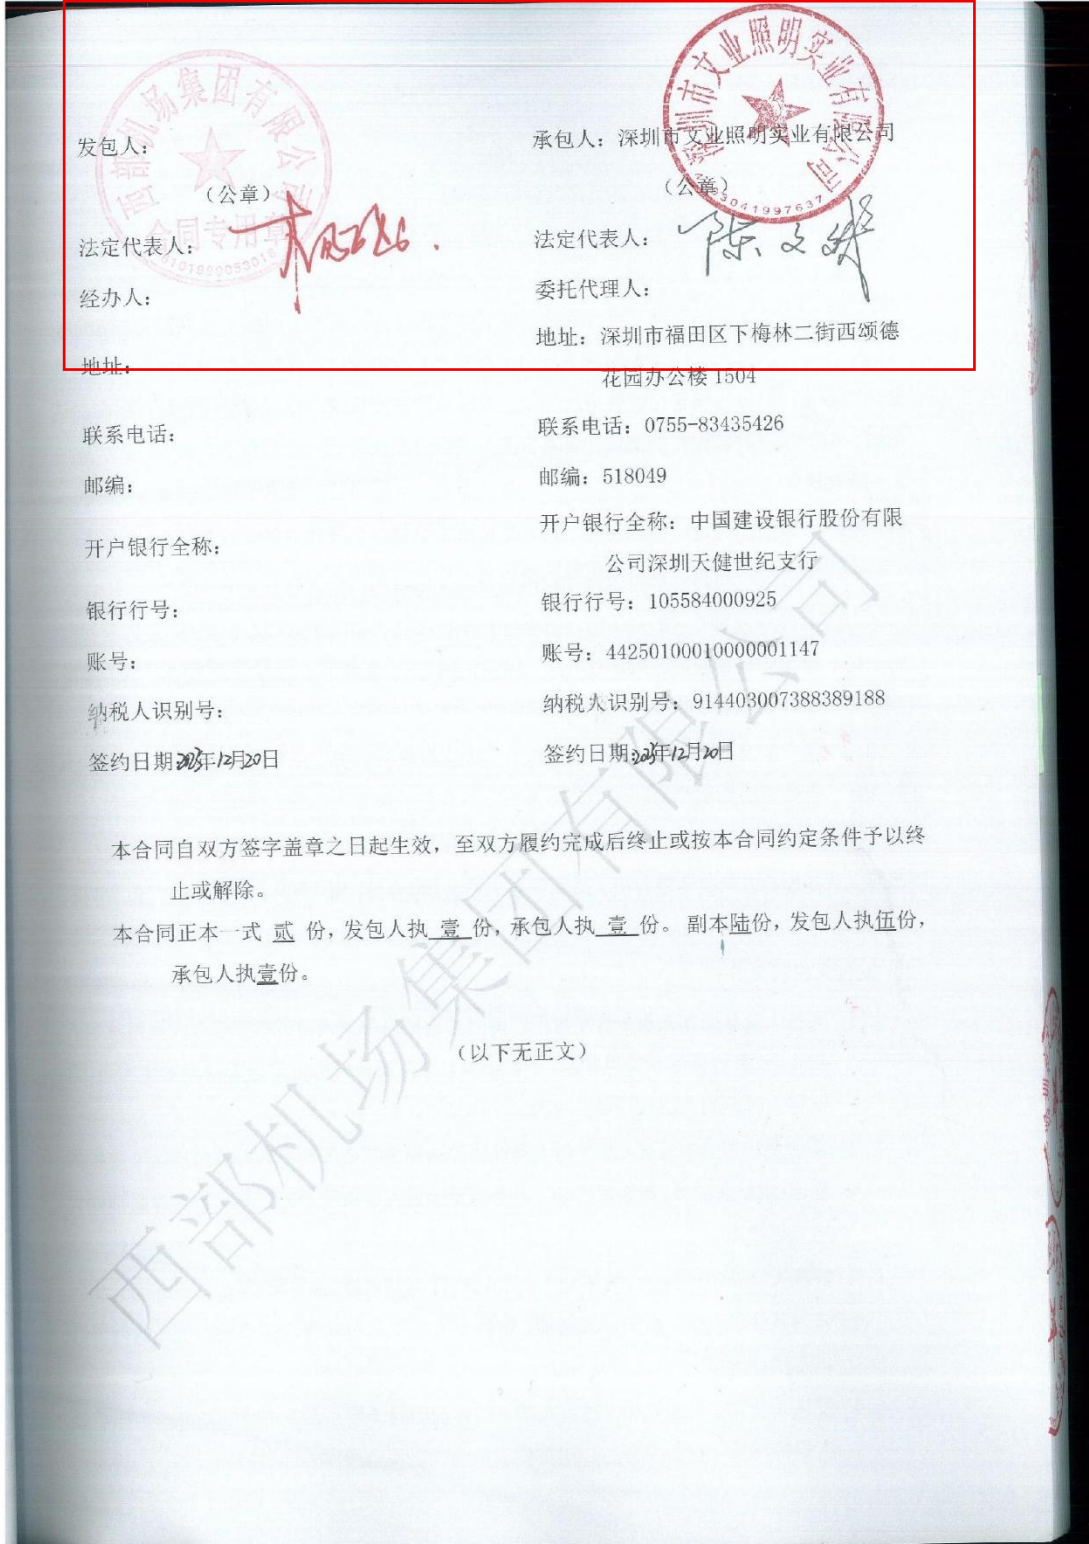 西部机场集团有限公司
合同专用章
深圳市文业照明实业有限公司
发包人：
（公章）
法定代表人：
经办人：
地址：
联系电话：
邮编：
开户银行全称：
银行行号：
账号：
纳税人识别号：
签约日期：2023年12月20日
承包人：深圳市文业照明实业有限公司
（公章）
法定代表人：陈文
委托代理人：
地址：深圳市福田区下梅林二街西颂德
花园办公楼 1504
联系电话：0755-83435426
邮编：518049
开户银行全称：中国建设银行股份有限
公司深圳天健世纪支行
银行行号：105584000925
账号：44250100010000001147
纳税人识别号：914403007388389188
签约日期：2023年12月20日
本合同自双方签字盖章之日起生效，至双方履约完成后终止或按本合同约定条件予以终
止或解除。
本合同正本一式 贰 份，发包人执 壹 份，承包人执 壹 份。 副本陆份，发包人执伍份，
承包人执壹份。
（以下无正文）
西部机场集团有限公司